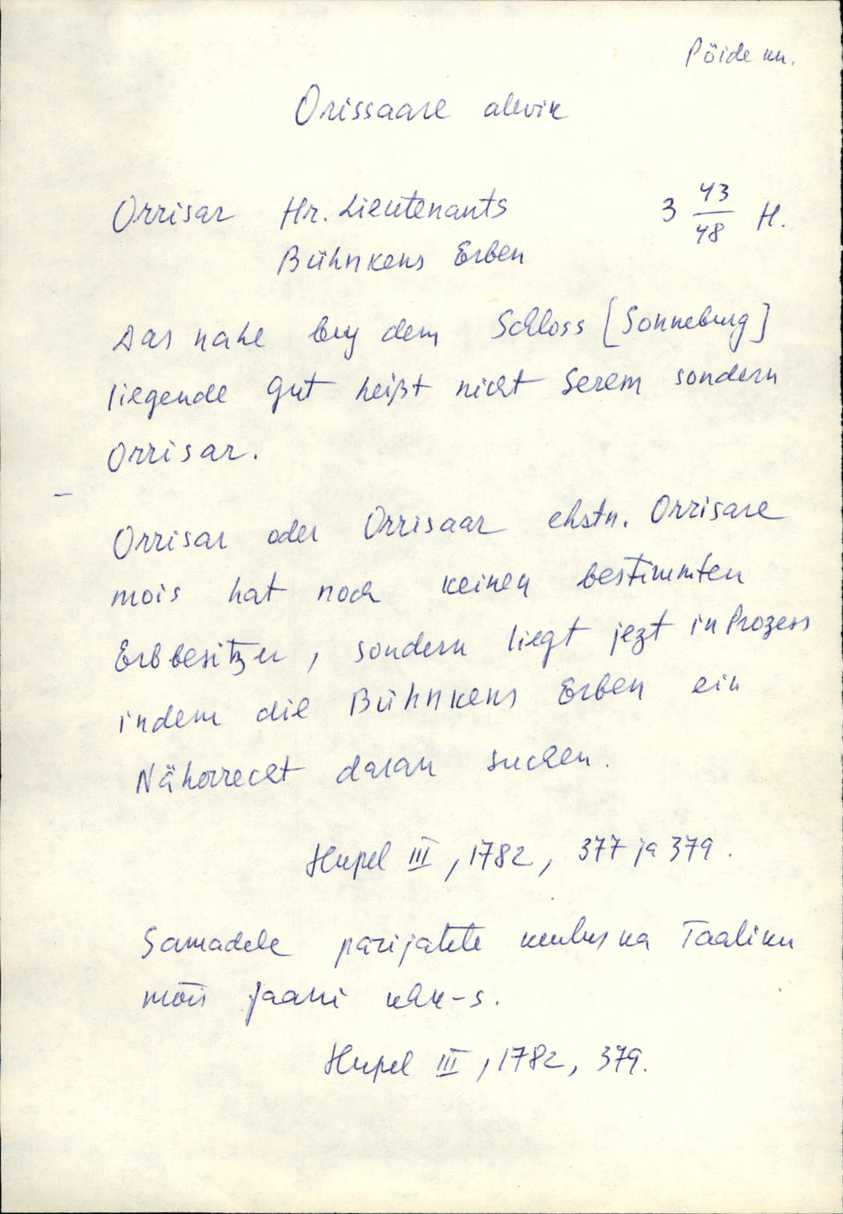 Pöide kh.
Orissaare alevik
Orrisar Hr. Lieutenants 3 43/48 H.
Bühnkens Erben
Das nahe bey dem Schloss [Sonneburg]
liegende Gut heißt nicht Serem sondern
Orrisar.
Orrisar oder Orrisaar ehstn. Orrisare
mois hat noch keinen bestimmten
Erbbesitzer, sondern liegt jezt in Prozess
indem die Bühnkens Erben ein
Näherrecht daran suchen.
Hupel III, 1782, 377 ja 379.
Samadele parijatele kuulus ka Taaliku
mõis Jaani khk-s.
Hupel III, 1782, 379.